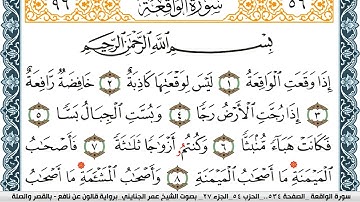 ٩٦ سُورَةُ الوَاقِعَةِ ٥٦
بِسْمِ اِ۬للَّهِ اِ۬لرَّحْمَٰنِ اِ۬لرَّحِيمِ
إِذَا وَقَعَتِ اِ۬لْوَاقِعَةُ ١ لَيْسَ لِوَقْعَتِهَا كَاذِبَةٌ ٢ خَافِضَةٌ رَّافِعَةٌ
٣ إِذَا رُجَّتِ اِ۬لْأَرْضُ رَجّاٗ ٤ وَبُسَّتِ اِ۬لْجِبَالُ بَسّاٗ ٥
فَكَانَتْ هَبَآءٗ مُّنۢبَثّاٗ ٦ وَكُنتُمُۥ أَزْوَٰجاٗ ثَلَٰثَةٗ ٧ فَأَصْحَٰبُ
اُ۬لْمَيْمَنَةِ مَآ أَصْحَٰبُ اُ۬لْمَيْمَنَةِ ٨ وَأَصْحَٰبُ اُ۬لْمَشْـَٔمَةِ مَآ أَصْحَٰبُ
سورة الواقعة . الصفحة ٥٣٤... الحزب ٥٤ . الجزء ٢٧ . بصوت الشيخ عمر الجنايني . برواية قالون عن نافع - بالقصر والصلة